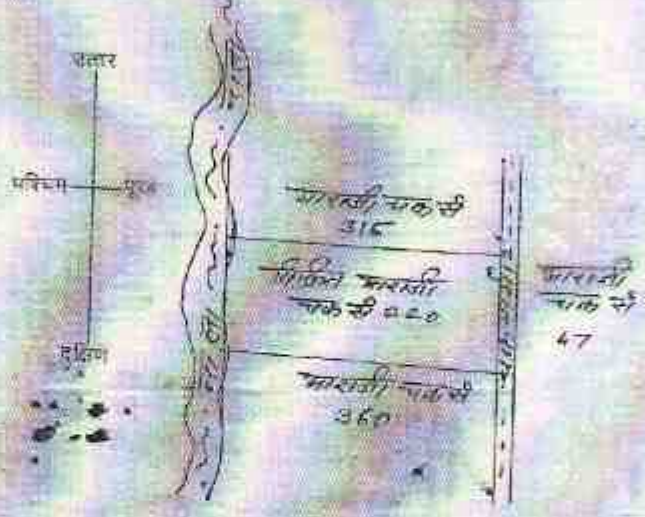 उत्तर
पश्चिम
पूरब
दक्षिण
आराजी चक सं
316
आराजी
चक सं 220
आराजी चक सं
360
आराजी
चक सं
47